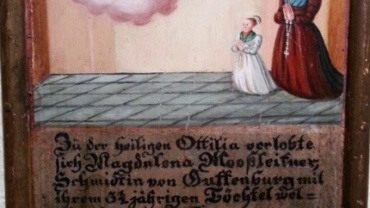 Zu der heiligen Ottilia verlobte
sich Magdalena Moosleitner,
Schmidtin von Guffenburg mit
ihrem 5¼ jährigen Töchtel wel-